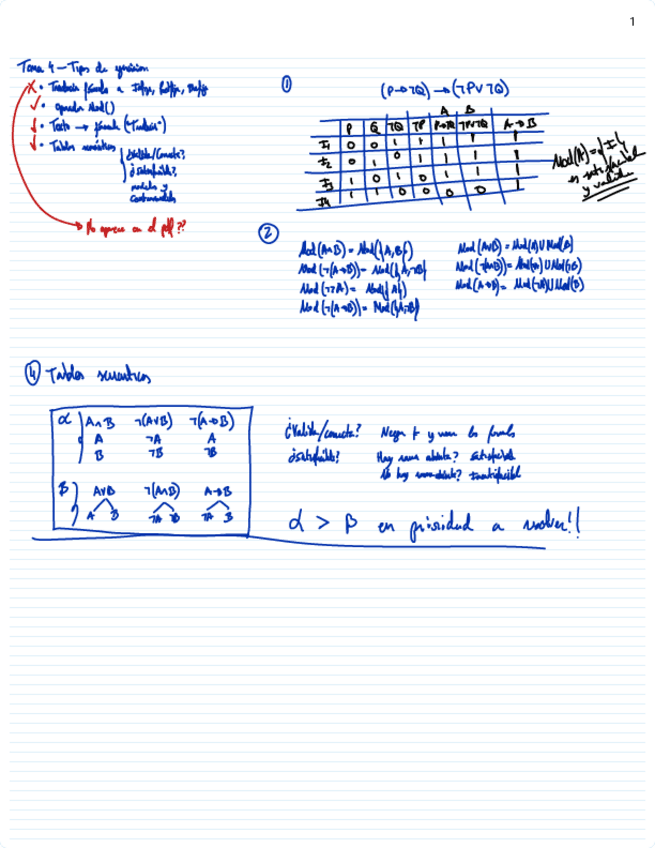 1
Tema 4 - Tipos de ejercicios
x • Traducir fórmula a
✓ • operador Mod()
✓ • Texto → fórmula ("Traducir")
✓ • Tablas semánticos
¿Validez/Correcta?
¿satisfacible?,
modelos y
contramodelos
→ No aparece en el pdf??
① (P→¬Q) → (¬P∨¬Q)
A B
P Q ¬Q ¬P P→¬Q ¬P∨¬Q A→B
I1 0 0 1 1 1 1 1
I2 0 1 0 1 1 1 1
I3 1 0 1 0 1 1 1
I4 1 1 0 0 0 0 1
Mod(A) = {I}
es satisfacible
y válida
②
Mod(A∧B) = Mod({A,B})
Mod(¬(A→B)) = Mod({A,¬B})
Mod(¬¬A) = Mod({A})
Mod(¬(A→B)) = Mod({A,¬B})
Mod(A∨B) = Mod(A)∪Mod(B)
Mod(¬(A∧B)) = Mod(¬A)∪Mod(¬B)
Mod(A→B) = Mod(¬A)∪Mod(B)
④ Tablas semánticos
α) A∧B ¬(A∨B) ¬(A→B)
A ¬A A
B ¬B ¬B
β) A∨B ¬(A∧B) A→B
A B ¬A ¬B ¬A B
¿Valida/correcta? Negar F y unir las formulas
¿satisfacible? Hay rama abierta? satisfacible
No hay rama abierta? Insatisfacible
α > β en prioridad a resolver!!